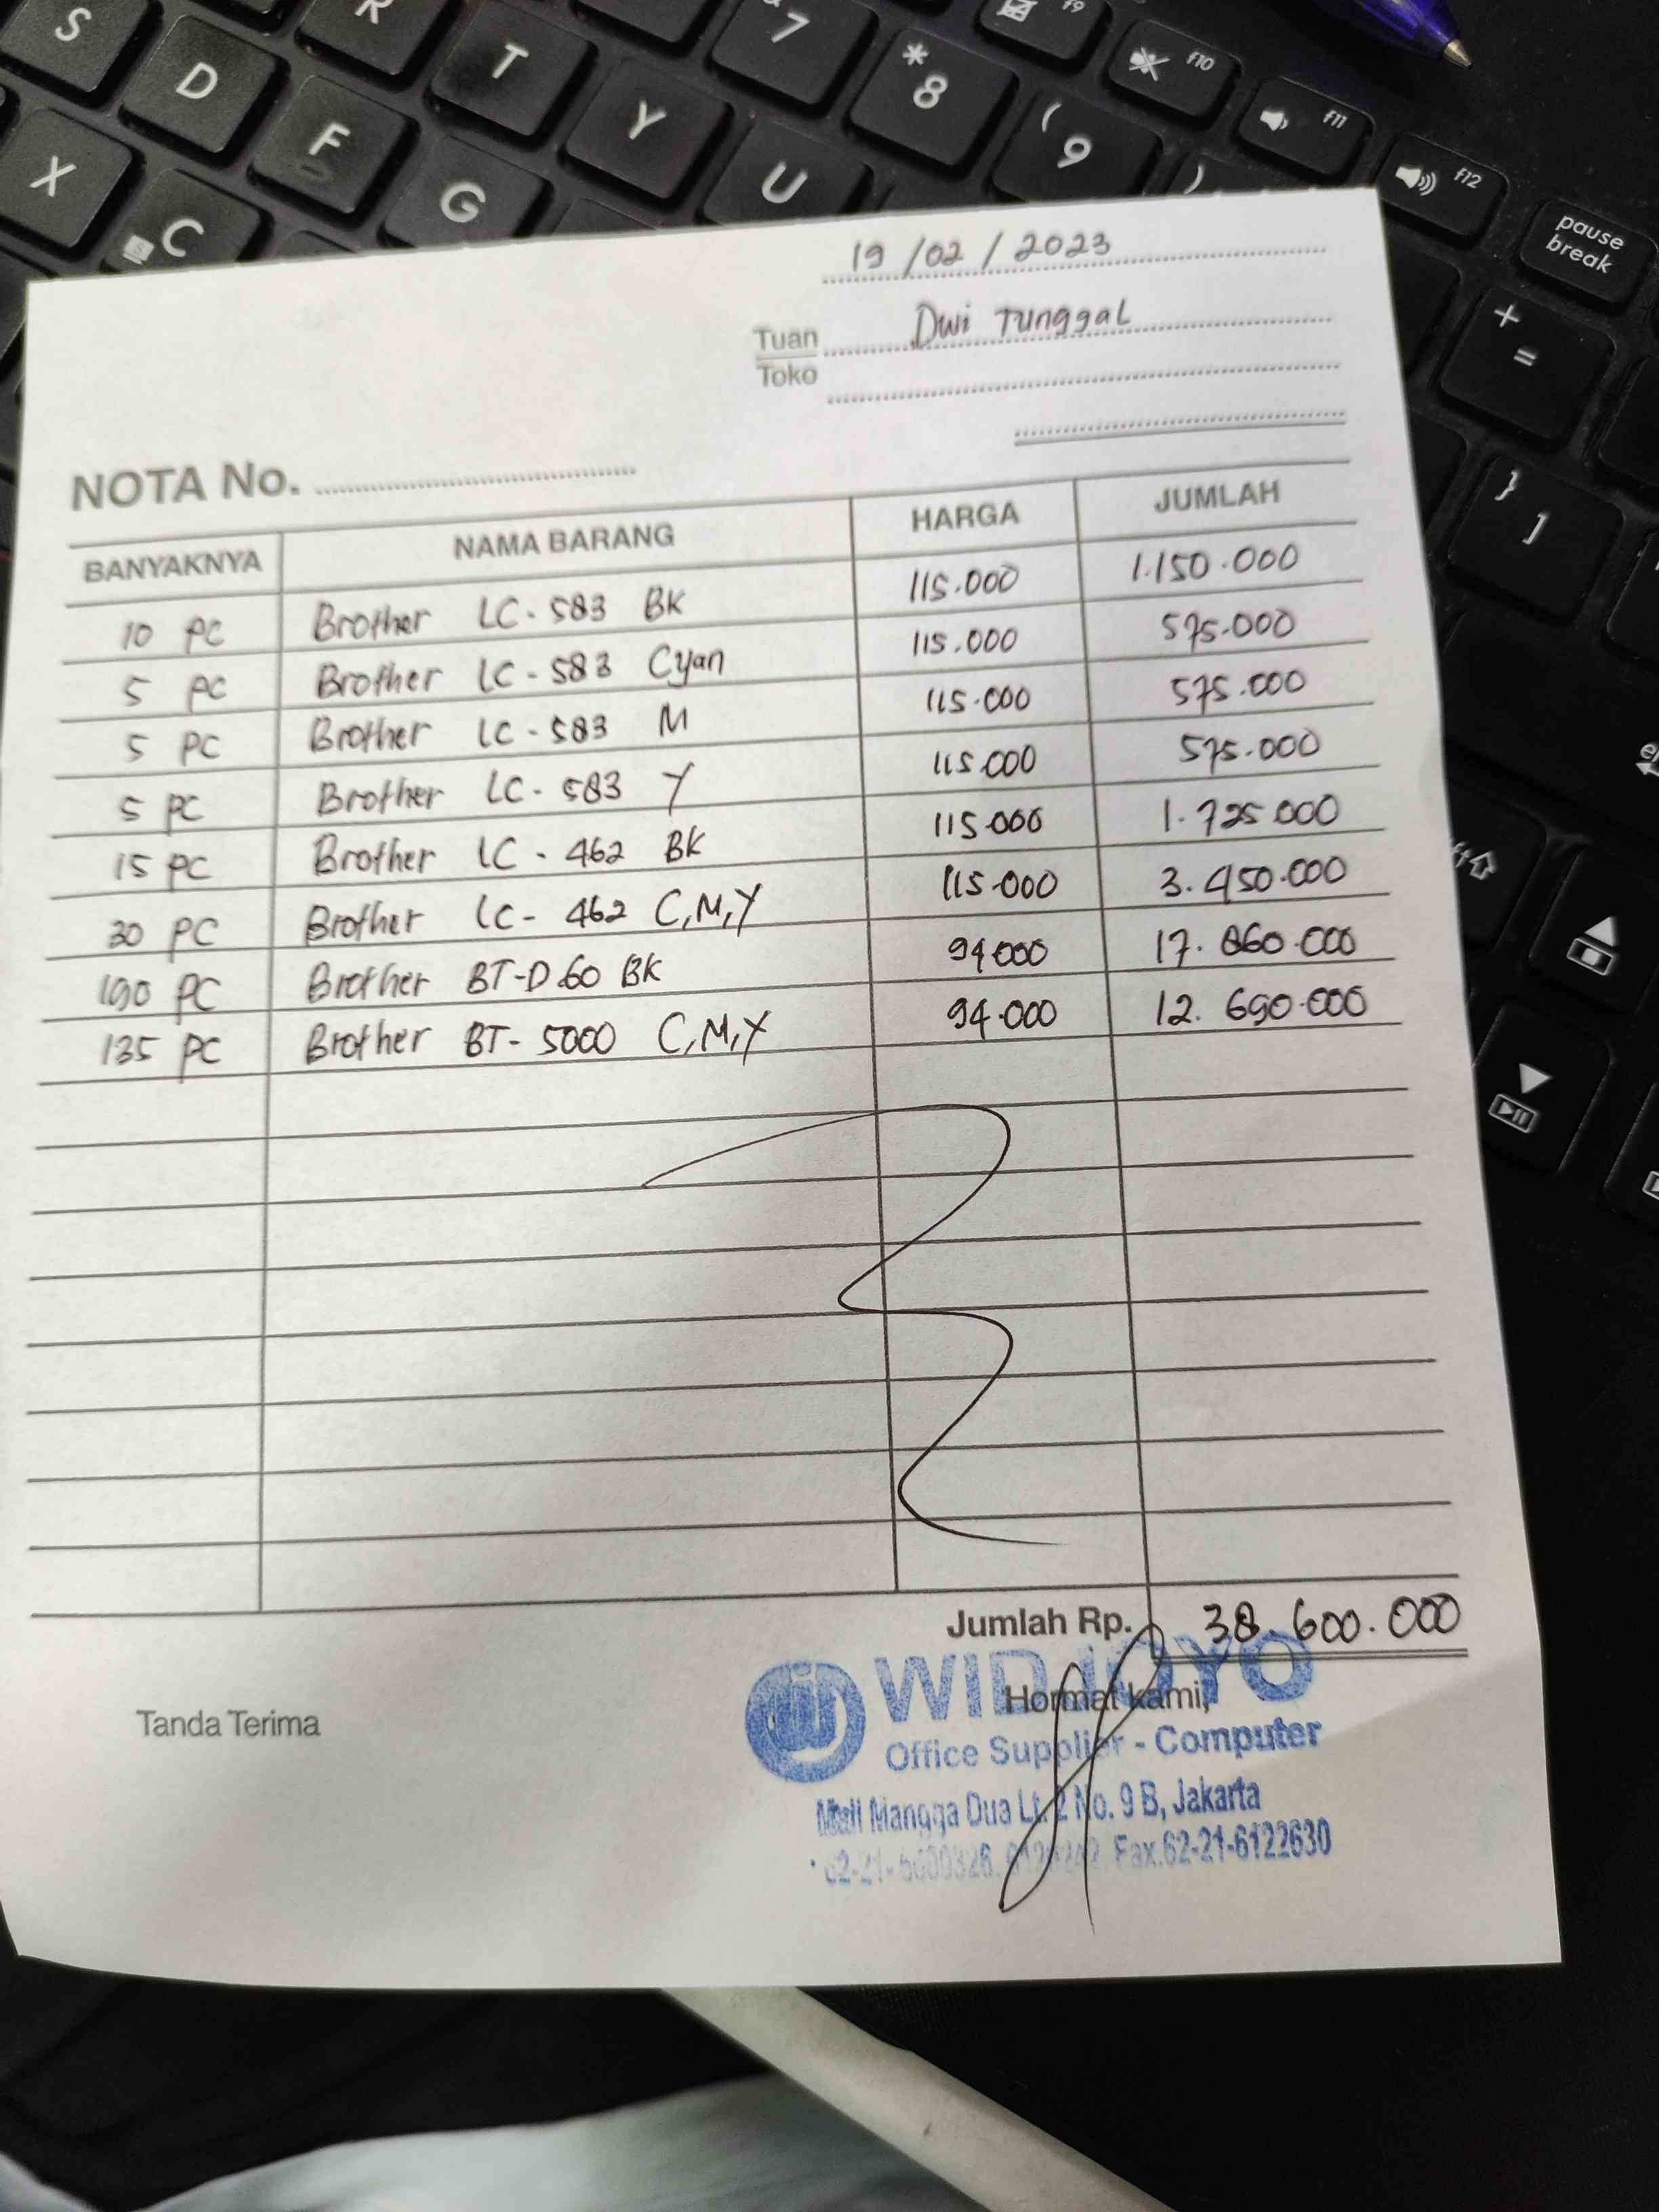 S
R
T
7
f9
D
F
Y
* 8
f10
X
C
G
U
( 9
f11
)
f12
pause break
+ =
} ]
19 /02 / 2023
Tuan Dwi Tunggal
Toko
NOTA No.
BANYAKNYA NAMA BARANG HARGA JUMLAH
10 PC Brother LC - 583 BK 115.000 1.150.000
5 PC Brother LC - 583 Cyan 115.000 575.000
5 PC Brother LC - 583 M 115.000 575.000
5 PC Brother LC - 583 Y 115.000 575.000
15 PC Brother LC - 462 BK 115.000 1.725.000
30 PC Brother LC - 462 C,M,Y 115.000 3.450.000
190 PC Brother BT-D.60 BK 94.000 17.860.000
135 PC Brother BT- 5000 C,M,Y 94.000 12.690.000
Jumlah Rp. 38.600.000
WIDJOYO
Tanda Terima Hormat kami,
Office Supplier - Computer
Mall Mangga Dua Lt. 2 No. 9 B, Jakarta
Fax.62-21-6122630